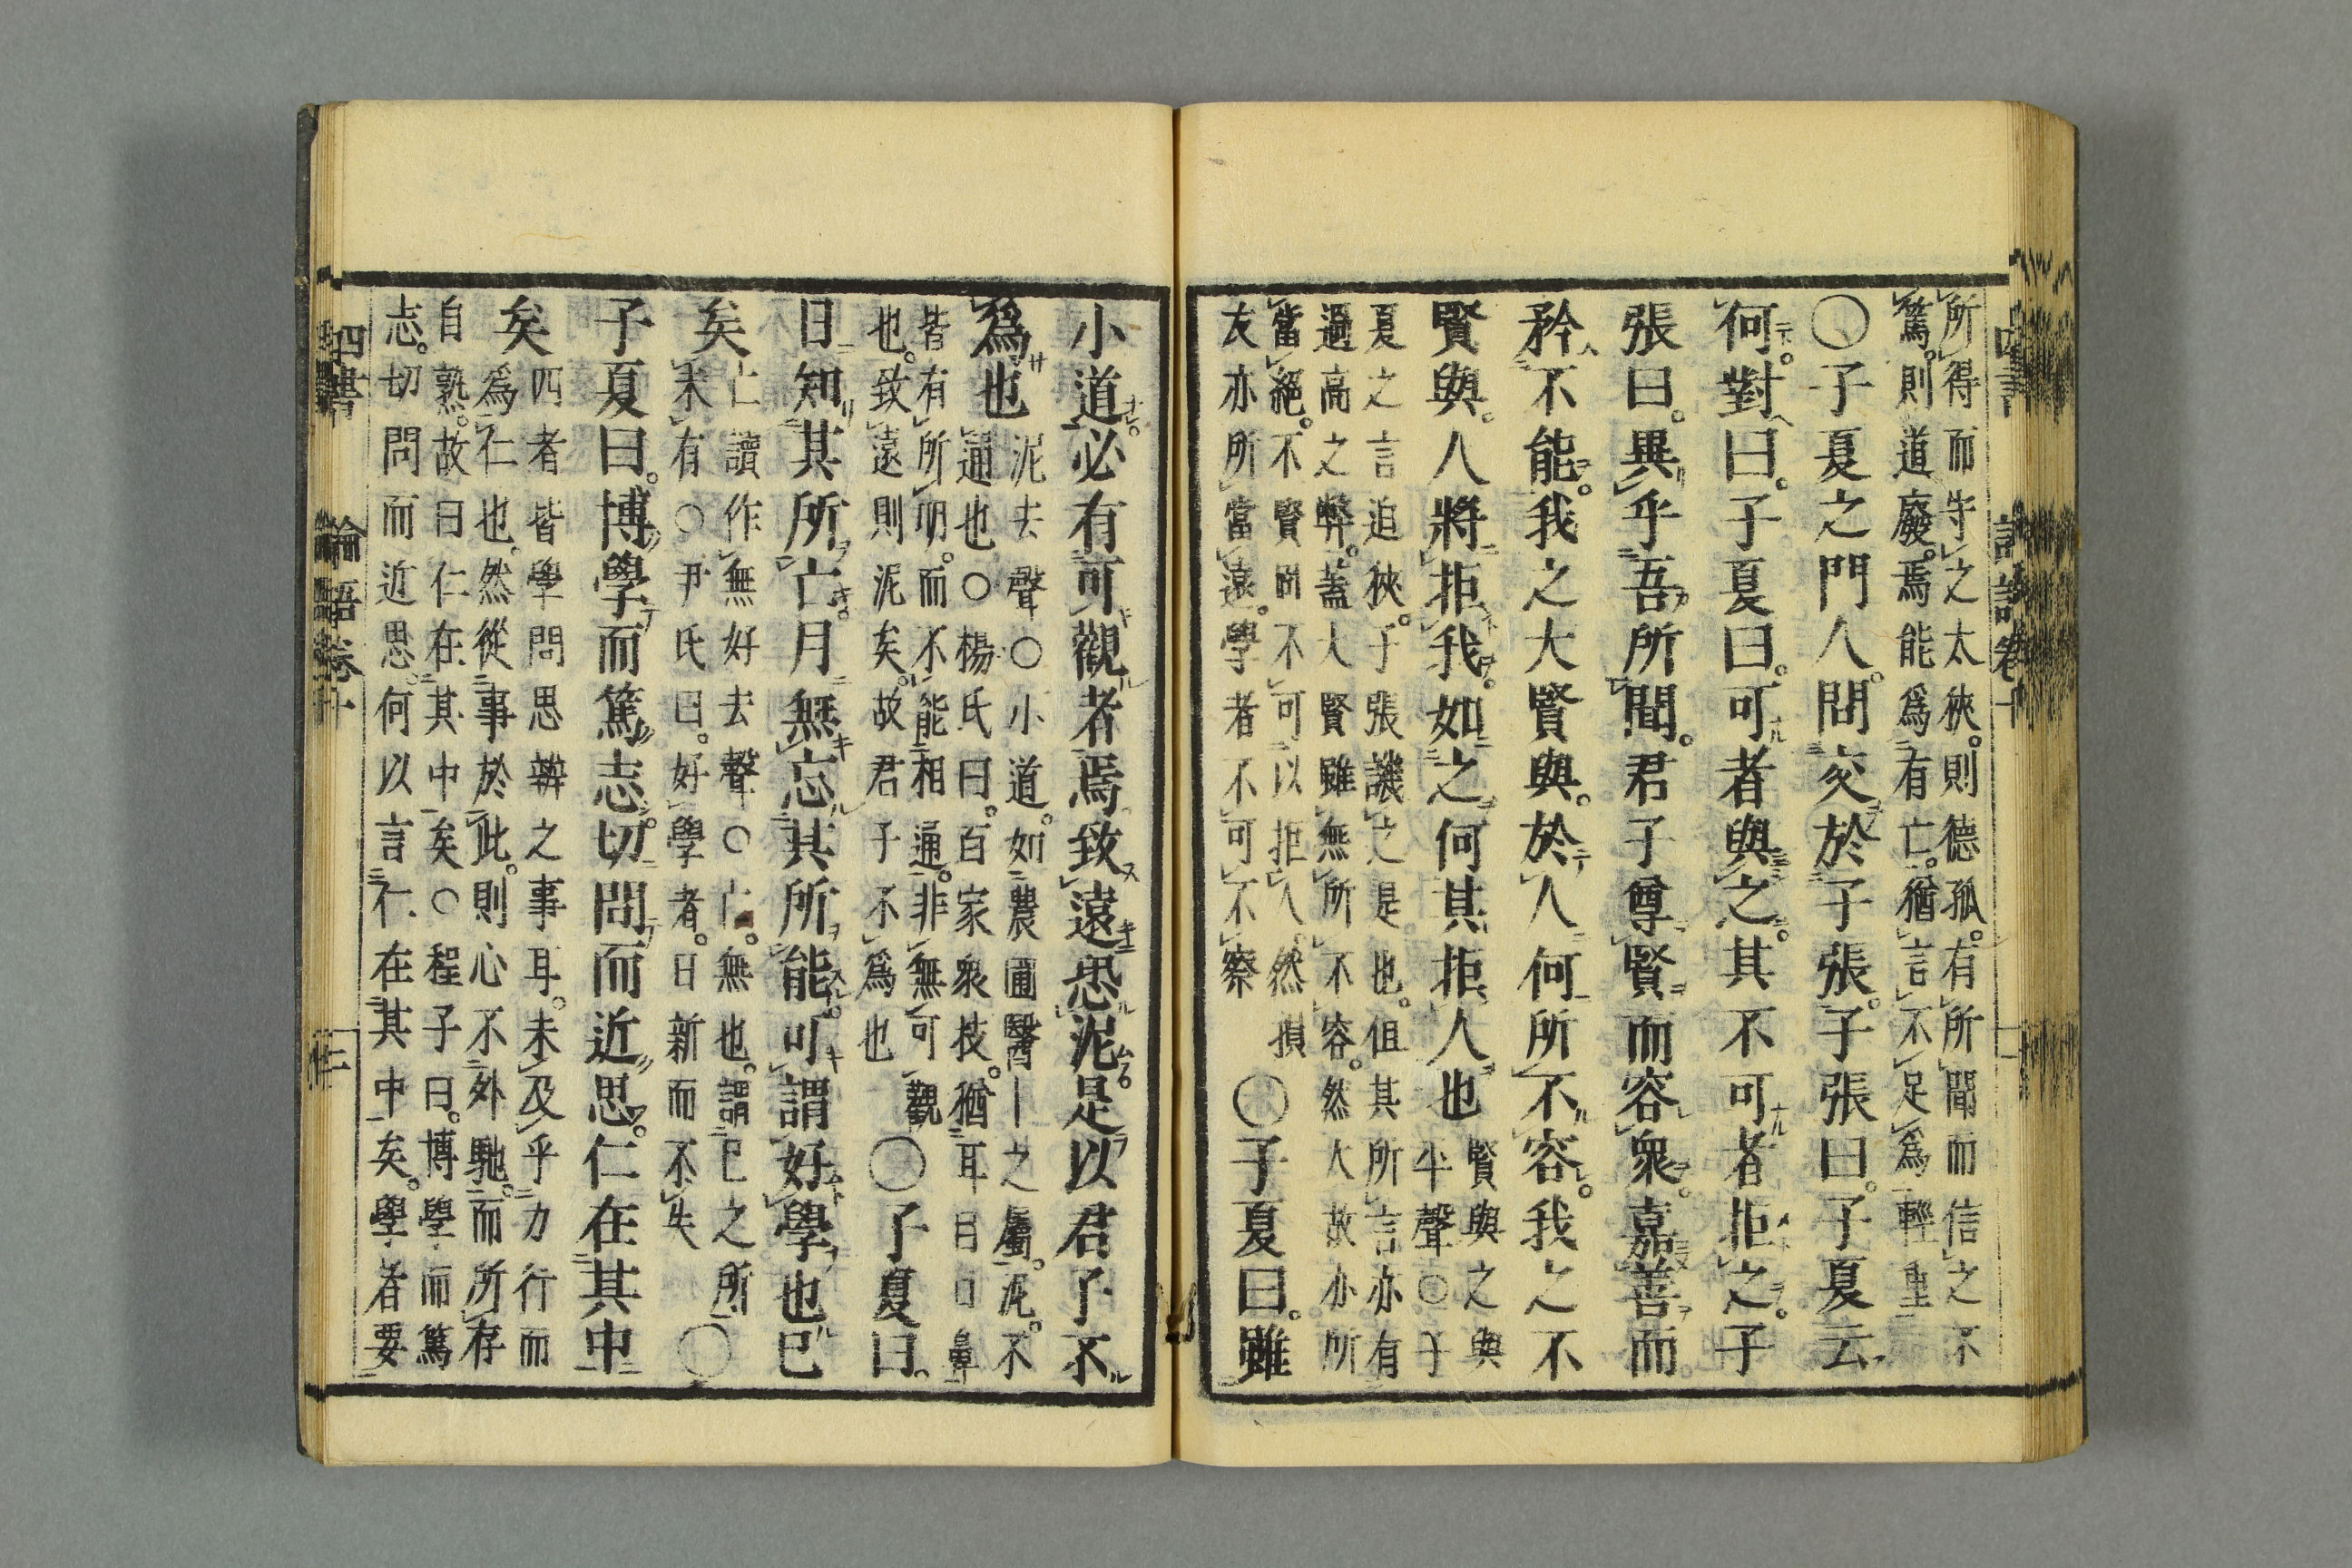 所得而守之太狹。則德孤。有所聞而信之不
篤。則道廢。焉能爲有亡。猶言不足爲輕重
〇子夏之門人。問交於子張。子張曰。子夏云
何。對曰。子夏曰。可者與之。其不可者拒之。子
張曰。異乎吾所聞。君子尊賢而容衆。嘉善而
矜不能。我之大賢與。於人何所不容。我之不
賢與。人將拒我。如之何其拒人也
賢與之與
平聲〇子
夏之言迫狹。子張譏之是也。但其所言亦有
過高之弊。蓋大賢雖無所不容。然大故亦所
當絕。不賢固不可以拒人。然損
友亦所當遠。學者不可不察
〇子夏曰。雖
小道。必有可觀者焉致遠恐泥。是以君子不
爲也
泥去聲〇小道。如農圃醫卜之屬。泥。不
通也〇楊氏曰。百家衆技。猶耳目口鼻
皆有所明。而不能相通。非無可觀
也。致遠則泥矣。故君子不爲也
〇子夏曰。
日知其所亡。月無忘其所能。可謂好學也已
矣
亡讀作無好去聲〇亡。無也。謂已之所
未有〇尹氏曰。好學者。日新而不失
〇
子夏曰。博學而篤志。切問而近思。仁在其中
矣
四者皆學問思辨之事耳。未及乎力行而
爲仁也。然從事於此。則心不外馳。而所存
自熟。故曰仁在其中矣〇程子曰。博學而篤
志。切問而近思。何以言仁在其中矣。學者要
四書
論語卷十